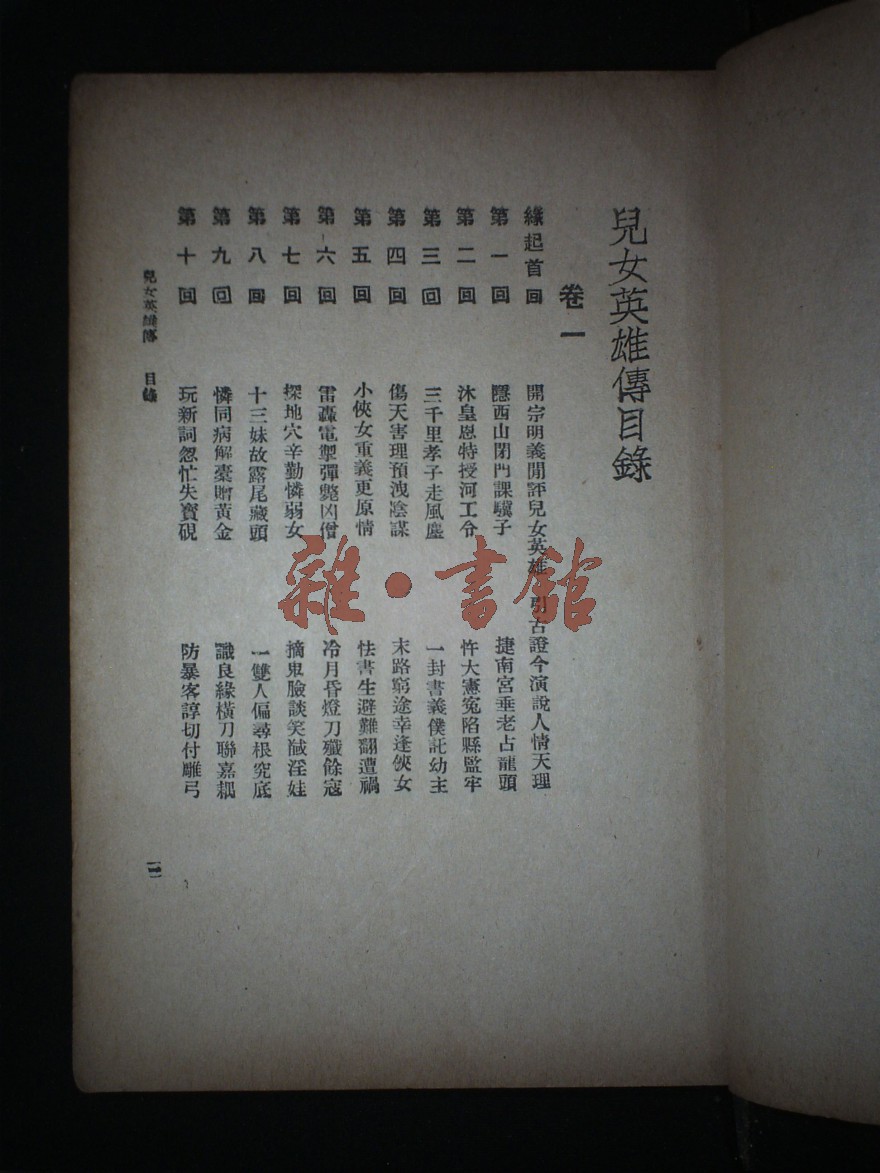 兒女英雄傳目錄
卷一
緣起首回 開宗明義閒評兒女英雄 引古證今演說人情天理
第一回 隱西山閉門課驥子 捷南宮垂老占龍頭
第二回 沐皇恩特授河工令 忤大憲冤陷縣監牢
第三回 三千里孝子走風塵 一封書義僕託幼主
第四回 傷天害理預洩陰謀 末路窮途幸逢俠女
第五回 小俠女重義更原情 怯書生避難翻遭禍
第六回 雷轟電掣彈斃凶僧 冷月昏燈刀殲餘寇
第七回 探地穴辛勤憐弱女 摘鬼臉談笑馘淫娃
第八回 十三妹故露尾藏頭 一雙人偏尋根究底
第九回 憐同病解橐贈黃金 識良緣橫刀聯嘉耦
第十回 玩新詞忽忙失寶硯 防暴客諄切付雕弓
兒女英雄傳 目錄
雜·書館